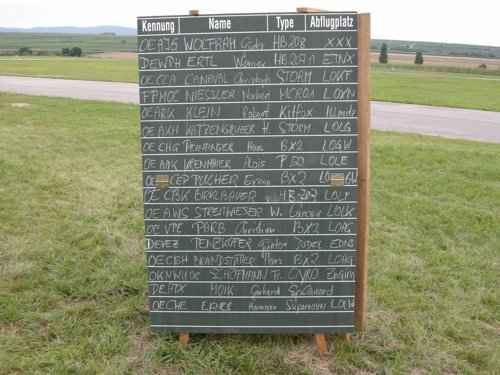 Kennung Name Type Abflugplatz
OE AJG WOLFRAM Günter HB208 XXX
DEWPH ERTL Werner HB207A ETNX
OE CCA CANAVAL Christoph STORM LOKF
NIESSLER Norbert MCR01 LOXN
OE ARK KLEIN Robert Kitfox
OE AXH KATZENGRUBER H. STORM LOLG
OE CHG PEINTINGER Hans BX2 LOGW
OE AAK KIRENMAIER Alois P50 LOLE
OE CEP PULCHER Erwin BX2 LO GW
OE CBK BIRKLBAUER HB-207 LOLF
OE AWS STREITWIESER W. Lancair LOLK
OE VPC PARB Christian BX2 LOAG
DEVEZ TENZKOFER Günter JODEL EDNS
OE CBH BRANDSTÄTTER Hans BX2 LOAG
SCHOFFMANN Fr. GYRO
DEATX MOIK Gerhard Canard
OE CHE EBNER LOLW